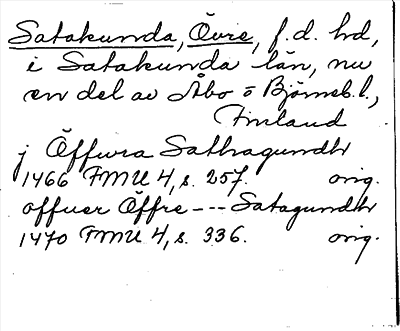 Satakunda, Övre, f.d. hd,
i Satakunda län, nu
en del av Åbo o Björneb. l.,
Finland
j Öffura Sathagundh
1466 FMU 4, s. 257. orig.
offuer Öffre --- Satagundh
1470 FMU 4, s. 336. orig.